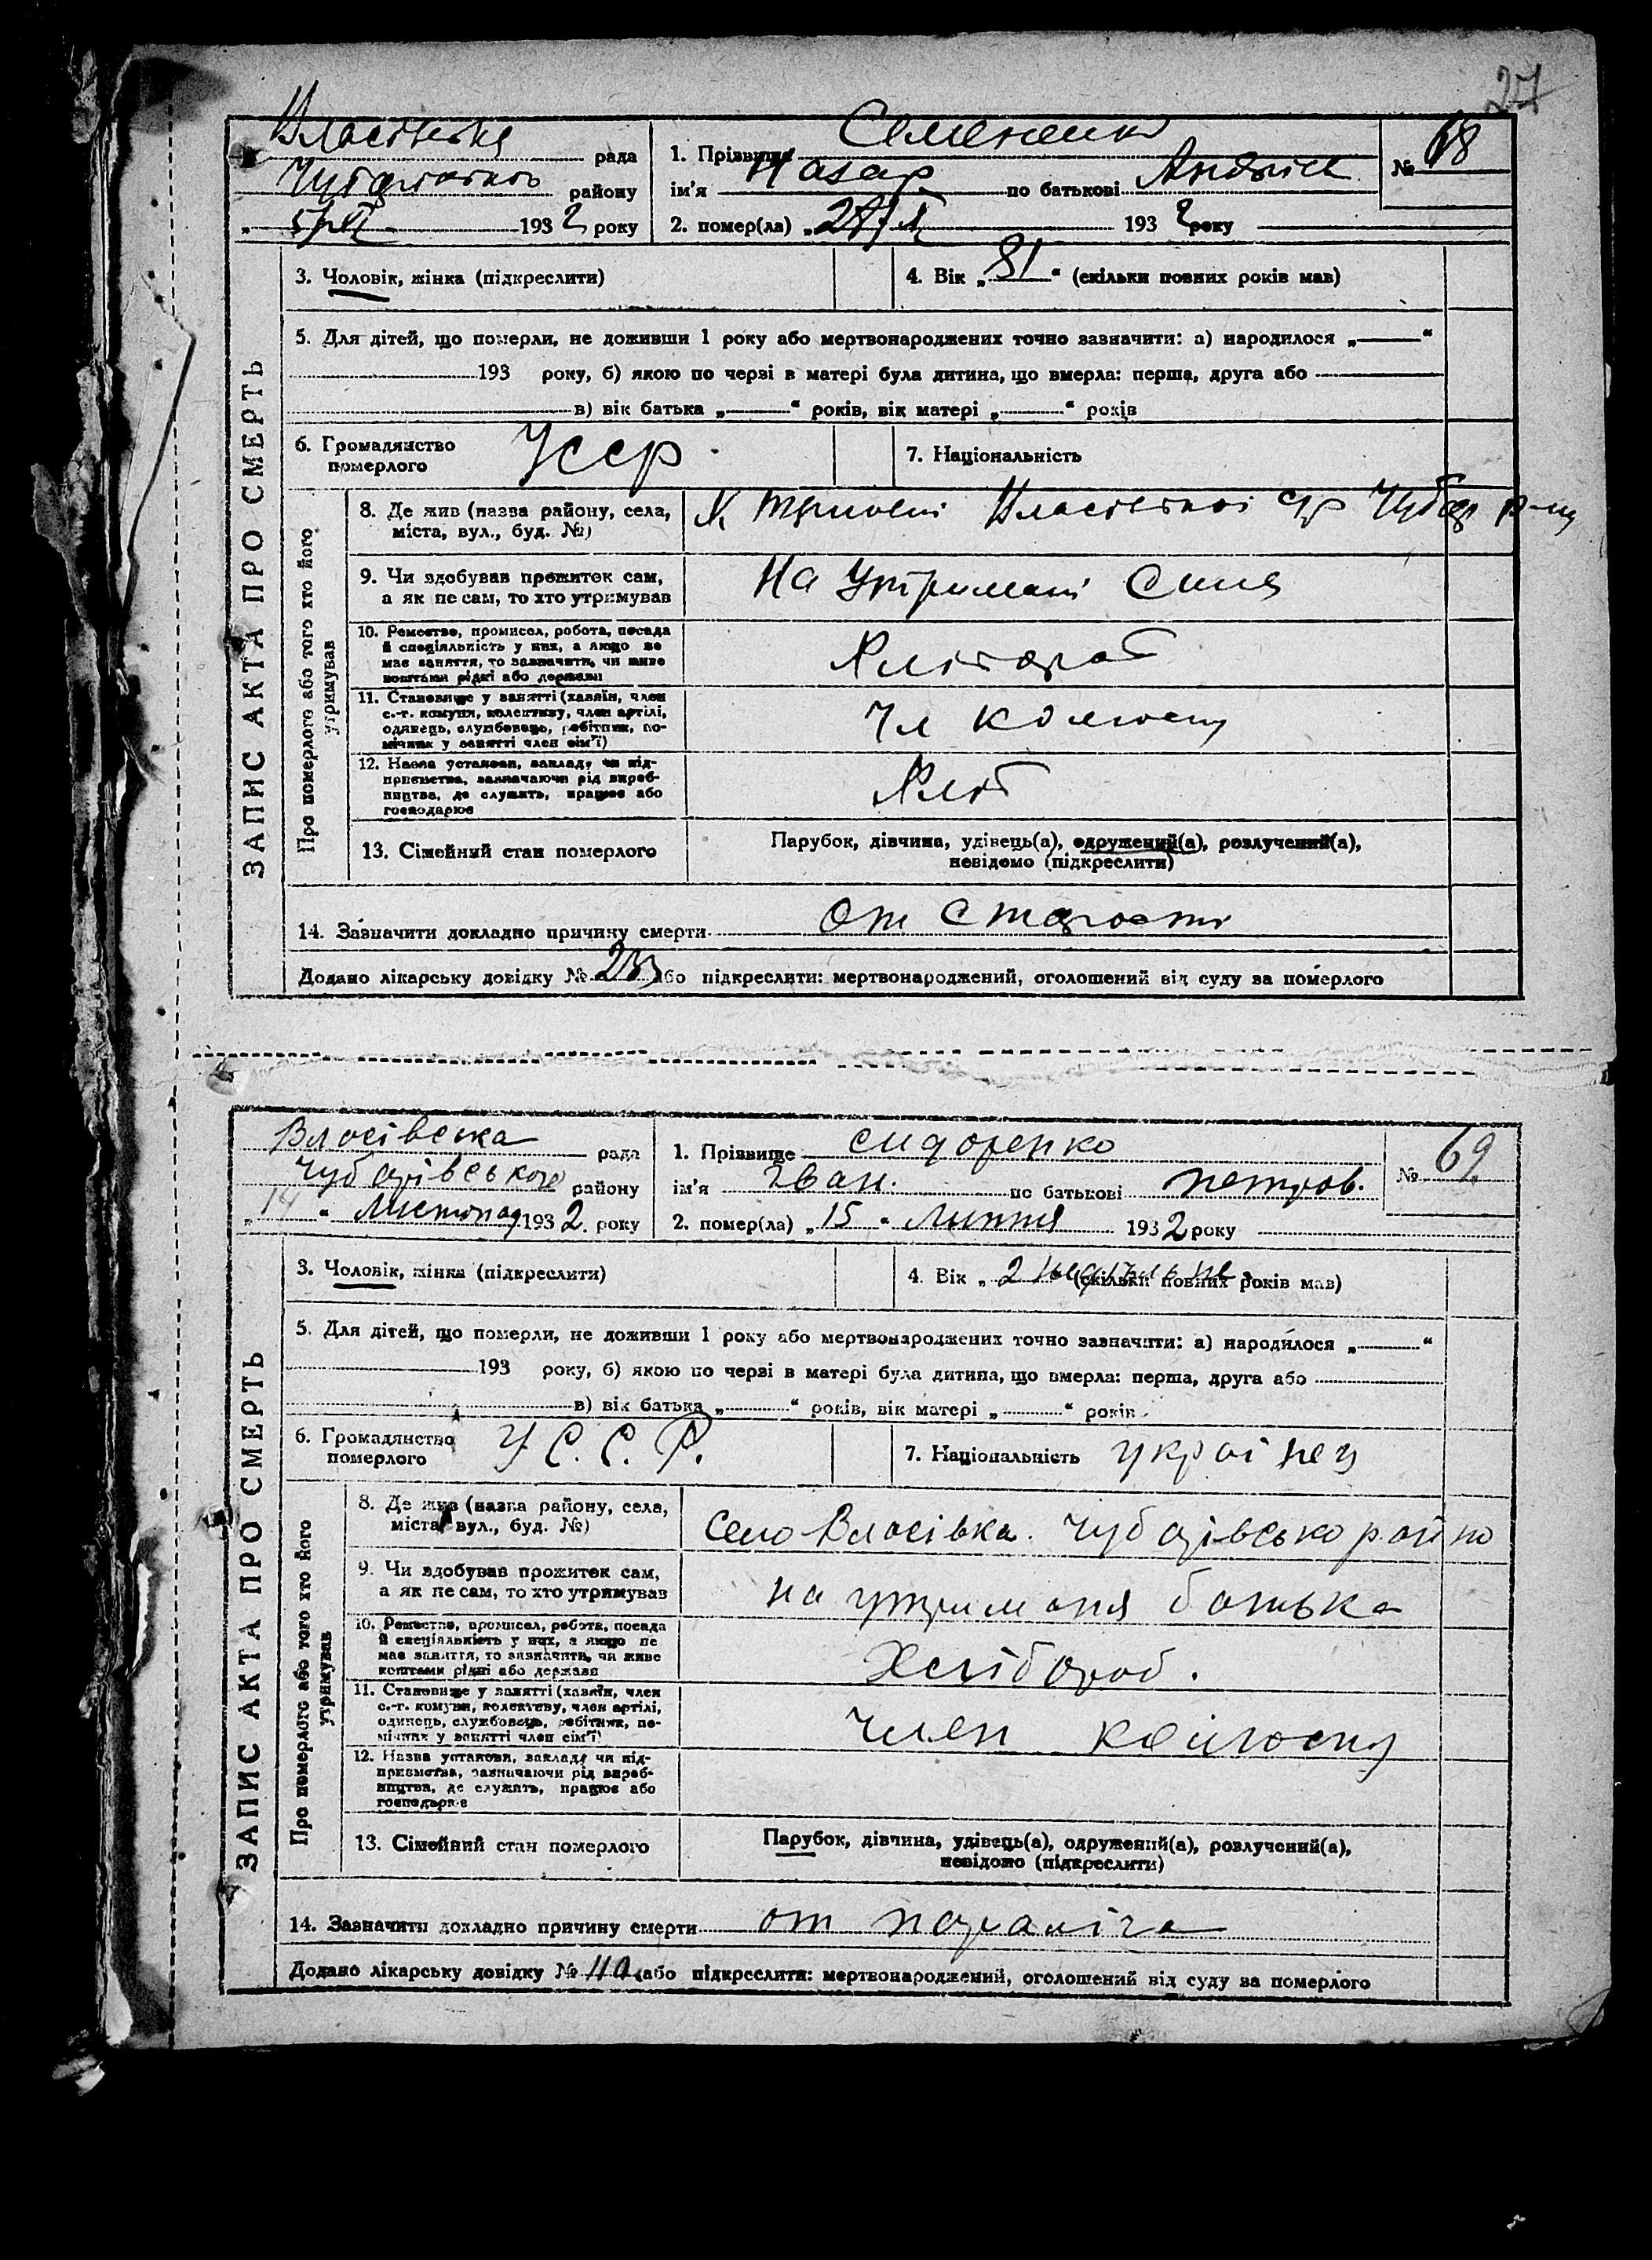 27
Власівська рада
району
193 2 року
1. Прізвище Семененко
ім'я Назар по батькові Андрієв
2. помер(ла) „ 193 2 року
№ 68
ЗАПИС АКТА ПРО СМЕРТЬ
3. Чоловік, жінка (підкреслити)
4. Вік „81“ (скільки повних років мав)
5. Для дітей, що померли, не доживши 1 року або мертвонароджених точно зазначити: а) народилося „ “
193 року, б) якою по черзі в матері була дитина, що вмерла: перша, друга або
в) вік батька „ “ років, вік матері „ “ років
6. Громадянство померлого Усср.
7. Національність
Про померлого або того хто його утримував
8. Де жив (назва району, села, Х Власівської с/р Чубар р-ну
міста, вул., буд. №)
9. Чи здобував прожиток сам, На утримані Сина
а як не сам, то хто утримував
10. Ремество, промисел, робота, посада
й спеціяльність у них, а якщо не Хлібороб
має заняття, то зазначити, чи живе
коштами рідні або держави
11. Становище у занятті (хазяїн, член
с.-г. комуни, колективу, член артілі, Чл колгоспу
одинець, службовець, робітник, по-
мічник у занятті член сім'ї)
12. Назва установи, закладу чи під-
приємства, зазначаючи рід вироб- Хліб
ництва, де служить, працює або
господарює
13. Сімейний стан померлого Парубок, дівчина, удівець(а), одружений(а), розлучений(а),
невідомо (підкреслити)
14. Зазначити докладно причину смерти От старости
Додано лікарську довідку № або підкреслити: мертвонароджений, оголошений від суду за померлого
Власівська рада
Чубарівського району
„14“ Листопад 193 2. року
1. Прізвище Сидоренко
ім'я Іван. по батькові петров.
2. помер(ла) „15“ Липня 193 2 року
№ 69
ЗАПИС АКТА ПРО СМЕРТЬ
3. Чоловік, жінка (підкреслити)
4. Вік „2 (скільки повних років мав)
5. Для дітей, що померли, не доживши 1 року або мертвонароджених точно зазначити: а) народилося „ “
193 року, б) якою по черзі в матері була дитина, що вмерла: перша, друга або
в) вік батька „ “ років, вік матері „ “ років
6. Громадянство померлого У.С.С.Р.
7. Національність українец
Про померлого або того хто його утримував
8. Де жив (назва району, села, Село Власівка. Чубарівсько району
міста, вул., буд. №)
9. Чи здобував прожиток сам, на утриманя батька
а як не сам, то хто утримував
10. Ремество, промисел, робота, посада
й спеціяльність у них, а якщо не Хлібороб.
має заняття, то зазначити, чи живе
коштами рідні або держави
11. Становище у занятті (хазяїн, член
с.-г. комуни, колективу, член артілі, член колгоспу
одинець, службовець, робітник, по-
мічник у занятті член сім'ї)
12. Назва установи, закладу чи під-
приємства, зазначаючи рід вироб-
ництва, де служить, працює або
господарює
13. Сімейний стан померлого Парубок, дівчина, удівець(а), одружений(а), розлучений(а),
невідомо (підкреслити)
14. Зазначити докладно причину смерти от параліча
Додано лікарську довідку № або підкреслити: мертвонароджений, оголошений від суду за померлого